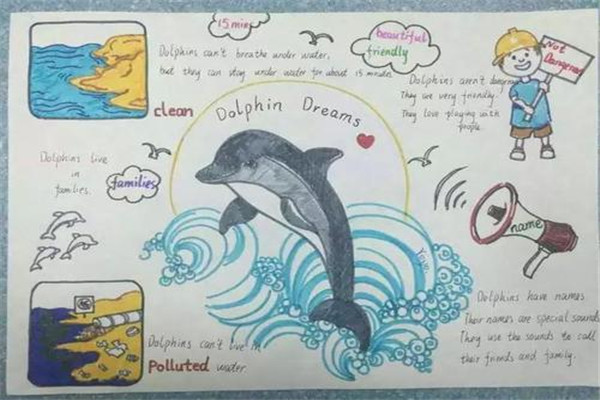 15 mins
beautiful
friendly
Not
Dangerous
Dolphins can't breathe under water,
but they can stay under water for about 15 minutes
clean
Dolphin Dreams
Dolphins aren't dangerous
They are very friendly.
They love playing with
people.
Dolphins live
in
families.
families
name
Dolphins have names.
Their names are special sounds
They use the sounds to call
their friends and family.
Dolphins can't live in
Polluted water